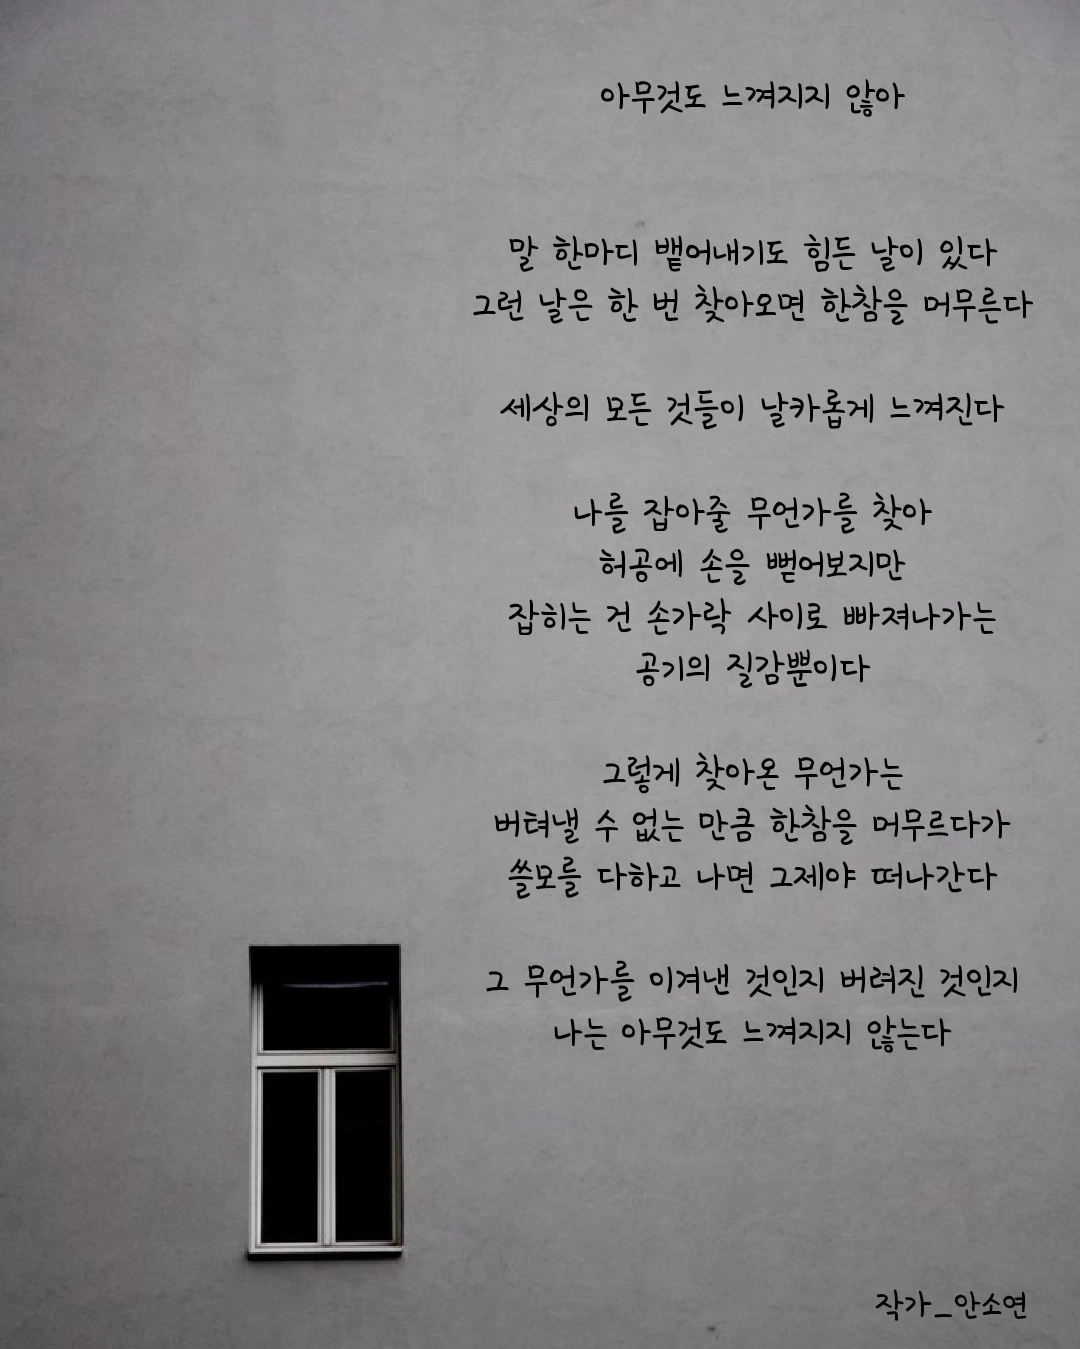 아무것도 느껴지지 않아
말 한마디 뱉어내기도 힘든 날이 있다
그런 날은 한 번 찾아오면 한참을 머무른다
세상의 모든 것들이 날카롭게 느껴진다
나를 잡아줄 무언가를 찾아
허공에 손을 뻗어보지만
잡히는 건 손가락 사이로 빠져나가는
공기의 질감뿐이다
그렇게 찾아온 무언가는
버텨낼 수 없는 만큼 한참을 머무르다가
쓸모를 다하고 나면 그제야 떠나간다
그 무언가를 이겨낸 것인지 버려진 것인지
나는 아무것도 느껴지지 않는다
작가_안소연